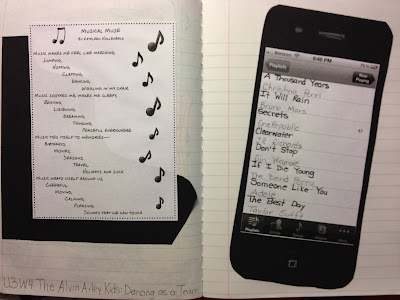 Musical Muse
By Kathleen Hollenbeck
Music makes me feel like marching,
Jumping,
Hopping,
Clapping,
Dancing,
Wiggling in my chair.
Music soothes me, makes me sleepy,
Resting,
Listening,
Dreaming,
Thinking,
Peaceful everywhere.
Music ties itself to memories—
Birthdays,
Movies,
Seasons,
Travel,
Holidays and such
Music wraps itself around us,
Cheerful,
Moving,
Calming,
Pleasing,
Sounds that we can touch
U3W4 The Alvin Ailey Kids: Dancing as a Team
Verizon
9:46 PM
Playlists
Now Playing
A Thousand Years
Christina Perri
It Will Rain
Bruno Mars
Secrets
OneRepublic
Clearwater
Don't Stop
If I Die Young
The Band Perry
Someone Like You
Adele
The Best Day
Taylor Swift
Playlists